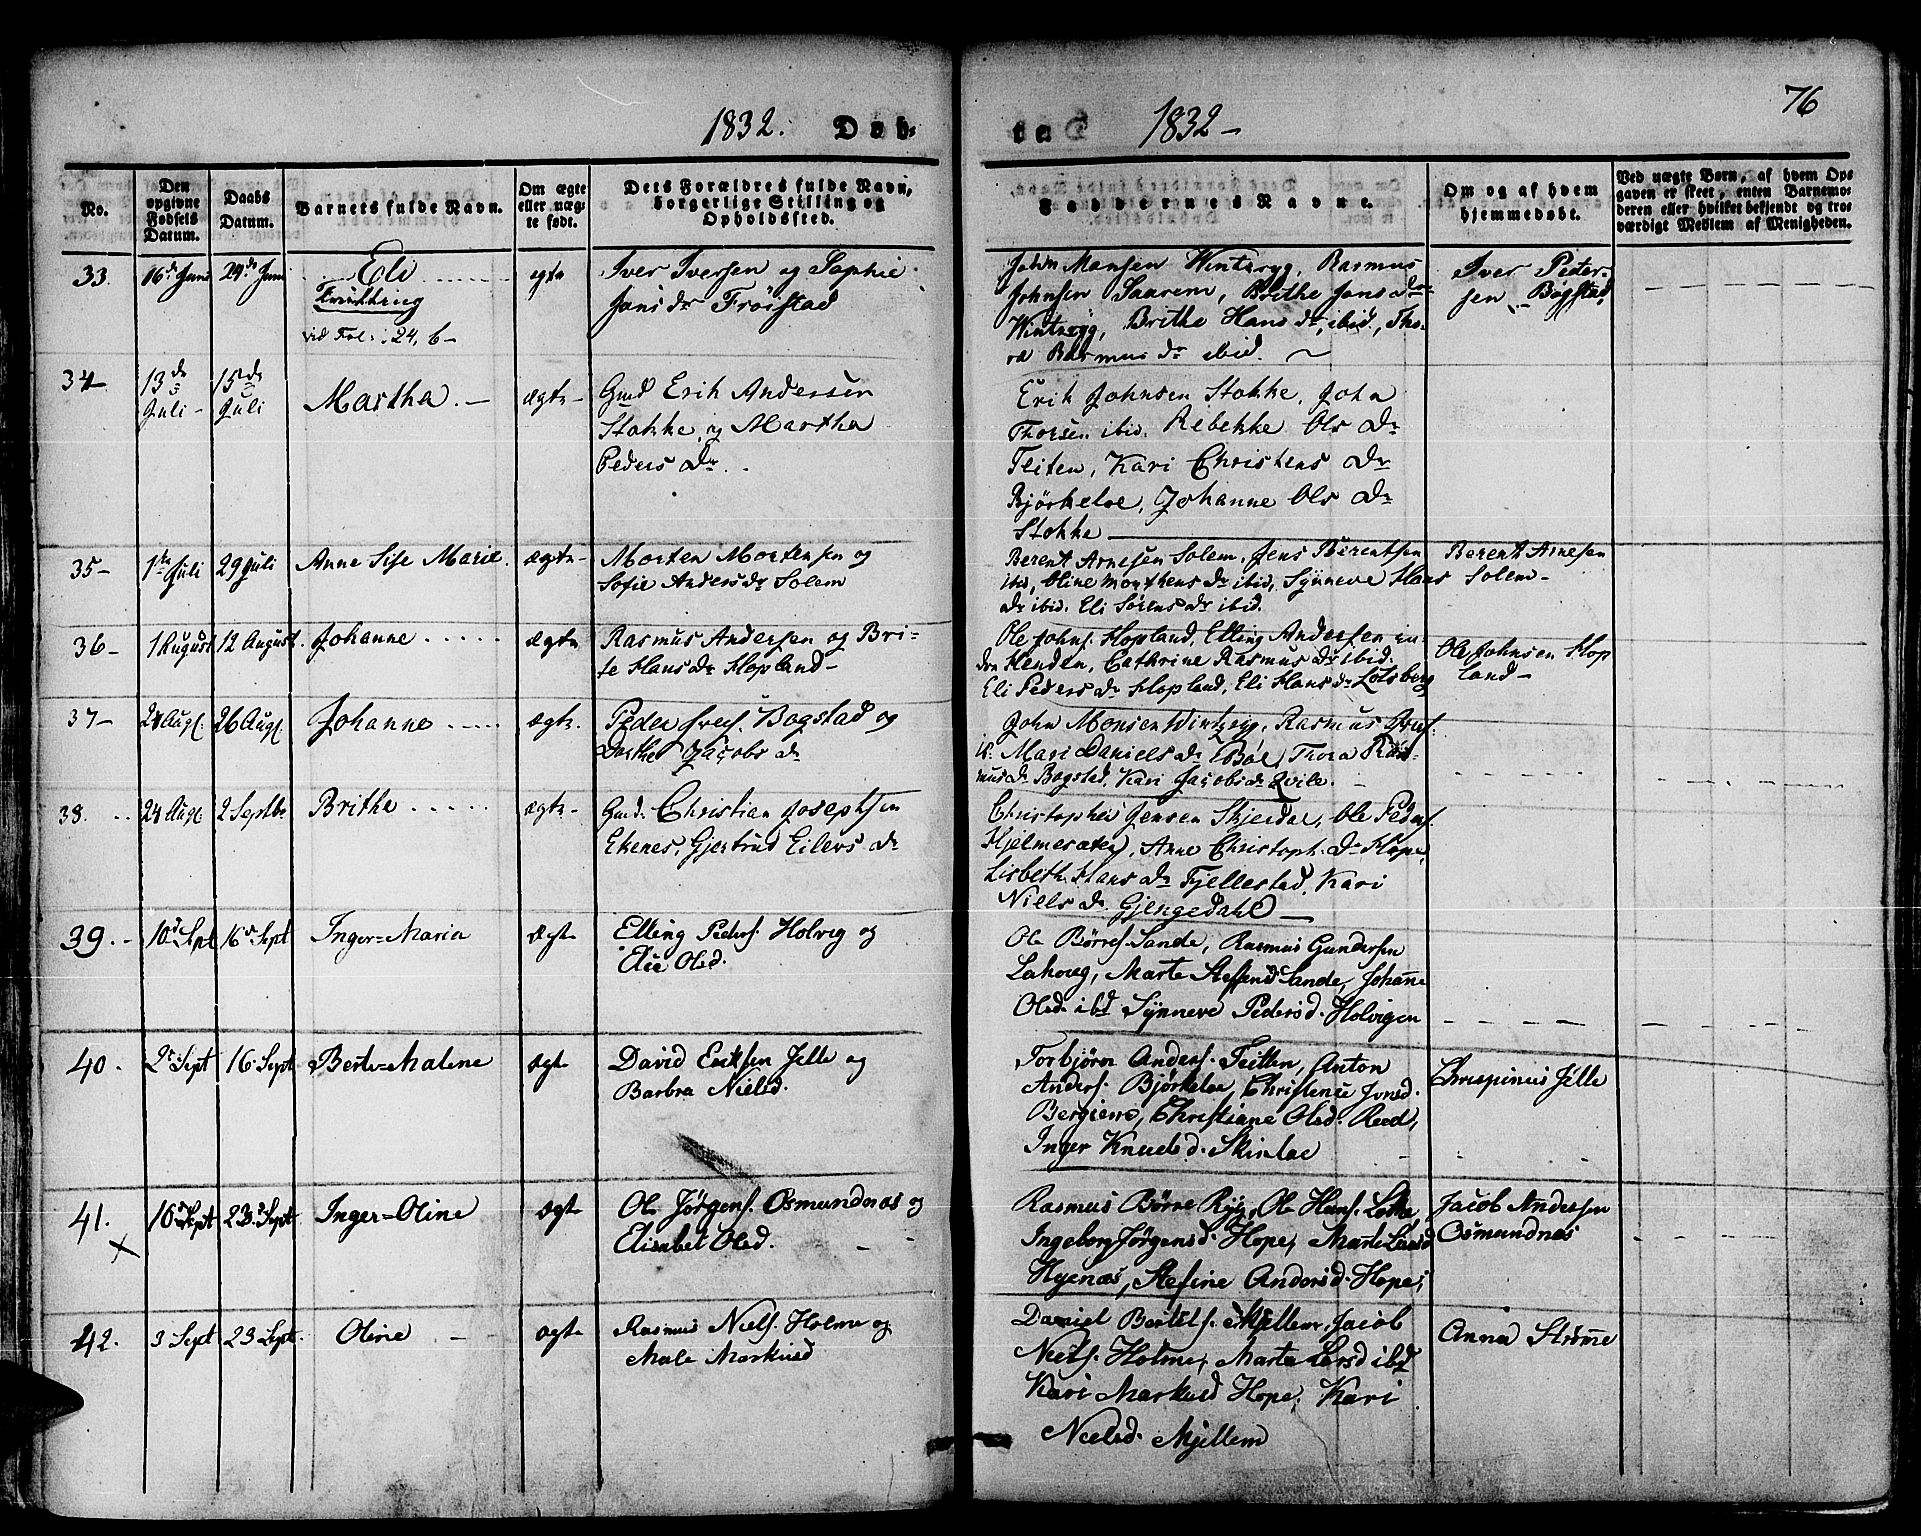 76
1832. Døb-
te. 1832 -
No.
Den opgivne Fødsels Datum.
Daabs Datum.
Barnets fulde Navn.
Om ægte eller uægte født.
Dets Forældres fulde Navn, borgerlige Stilling og Opholdssted.
Faddernes Navne.
Om og af hvem hjemmedøbt.
Ved uægte Børn, af hvem Opgaven er skeet, enten Barnemoderen eller hvilket bekjendt og troværdigt Medlem af Menigheden.
33. 16de Juni 24de Juni Eli egte
vid Fol: 24, 6 -
Iver Iversen og Sophie
Jens dr Frøistad
John Monsen Wintzryg, Rasmus
Johnsen Saurem, Brithe Jons dr
Wintzryg, Brithe Hans dr, ibid., Tho-
ra Rasmus dr ibid.
Iver Peter-
sen Bogstad
34 13de Juli - 15de Juli Martha. - ægte -
Gmd Erik Andersen
Stokke, og Martha
Peders dr.
Erik Johnsen Stokke, John
Thorsen ibid. Rebekke Ols dr
Fliten, Kari Christens dr
Bjørkeloe, Johanne Ols dr
Stokke
35 - 1te Juli 29 Juli Anne Sise Marie. ægte -
Morten Mortensen og
Sofie Anders dr Solem
Berent Arnesen Solem, Jens Berentsen
ibid, Oline Morthens dr ibid, Synneve Hans
dr ibid. Eli Sørens dr ibid.
Berent Arnesen
Solem -
36 - 1 August 12 August. Johanne ægte
Rasmus Andersen og Bri-
te Hans dr Hopland -
Ole Johns. Hopland, Elling Andersen in-
dre Henden, Cathrine Rasmus dr ibid.
Eli Peders dr Hopland, Eli Hans dr Lotsberg
Ole Johnsen Hop
land -
37 - 24 Aug. 26 Aug. Johanne ægte.
Peder Ivers. Bogstad og
Dorthe Jacobs dr
John Monsen Wintzryg, Rasmus
Mari Daniels dr Bøe, Thora Ras-
mus dr Bogstad, Kari Jacobs dr Qvile.
38. 24 Aug. 2 Septbr Brithe ægte -
Gmd. Christian Josephsen
Ekenes, Gjertrud Eilevs dr
Christopher Jensen Skjerdal, Ole Peders.
Hjelmesæter, Anne Christoph. dr Hope,
Lisbeth Hans dr Fjellestad, Kari
Niels dr. Gjengedahl -
39. - 10d Sept 16d Sept Inger-Maria Ægte
Elling Peders. Holvig og
Elie Olsd.
Ole Børres. Sande, Rasmus Gundersen
Lahoug, Marte Steffensd Sande, Johanne
Olsd. ibd Synneve Pedersd. Holvigen
40. 2d Sept 16 Sept Berte-Malene ægte
David Eriksen Jelle og
Barbra Nielsd.
Torbjørn Anders. Teitten, Anton
Anders. Bjørkeloe, Christence Jonsd.
Bergiene, Christiane Olsd. Reed,
Inger Knudsd. Skinloe
Chrispinus Jelle
41. 10d Sept 23d Sept Inger-Oline ægte
Ole Jørgens. Osmundnæs og
Elisabet Olsd.
Rasmus Børre Ryg, Ole Hans. Lothe
Ingeborg Jørgensd. Hope, Marte Larsd
Hyenæs, Stefine Andersd. Hope;
Jacob Andersen
Osmundnæs
42. 3 Sept 23 Sept. Oline ægte
Rasmus Niels. Holme og
Male Markusd
Daniel Bertels. Mjellem, Jacob
Niels. Holme, Marte Larsd ibd
Kari Markusd Hope, Kari
Nielsd. Mjellem
Anna Strømme